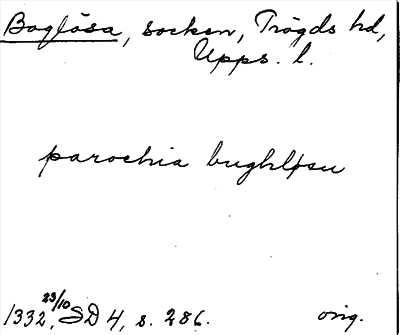 Boglösa, socken, Trögds hd,
Upps. l.
parochia bughløsu
1332 23/10, SD 4, s. 286. orig.